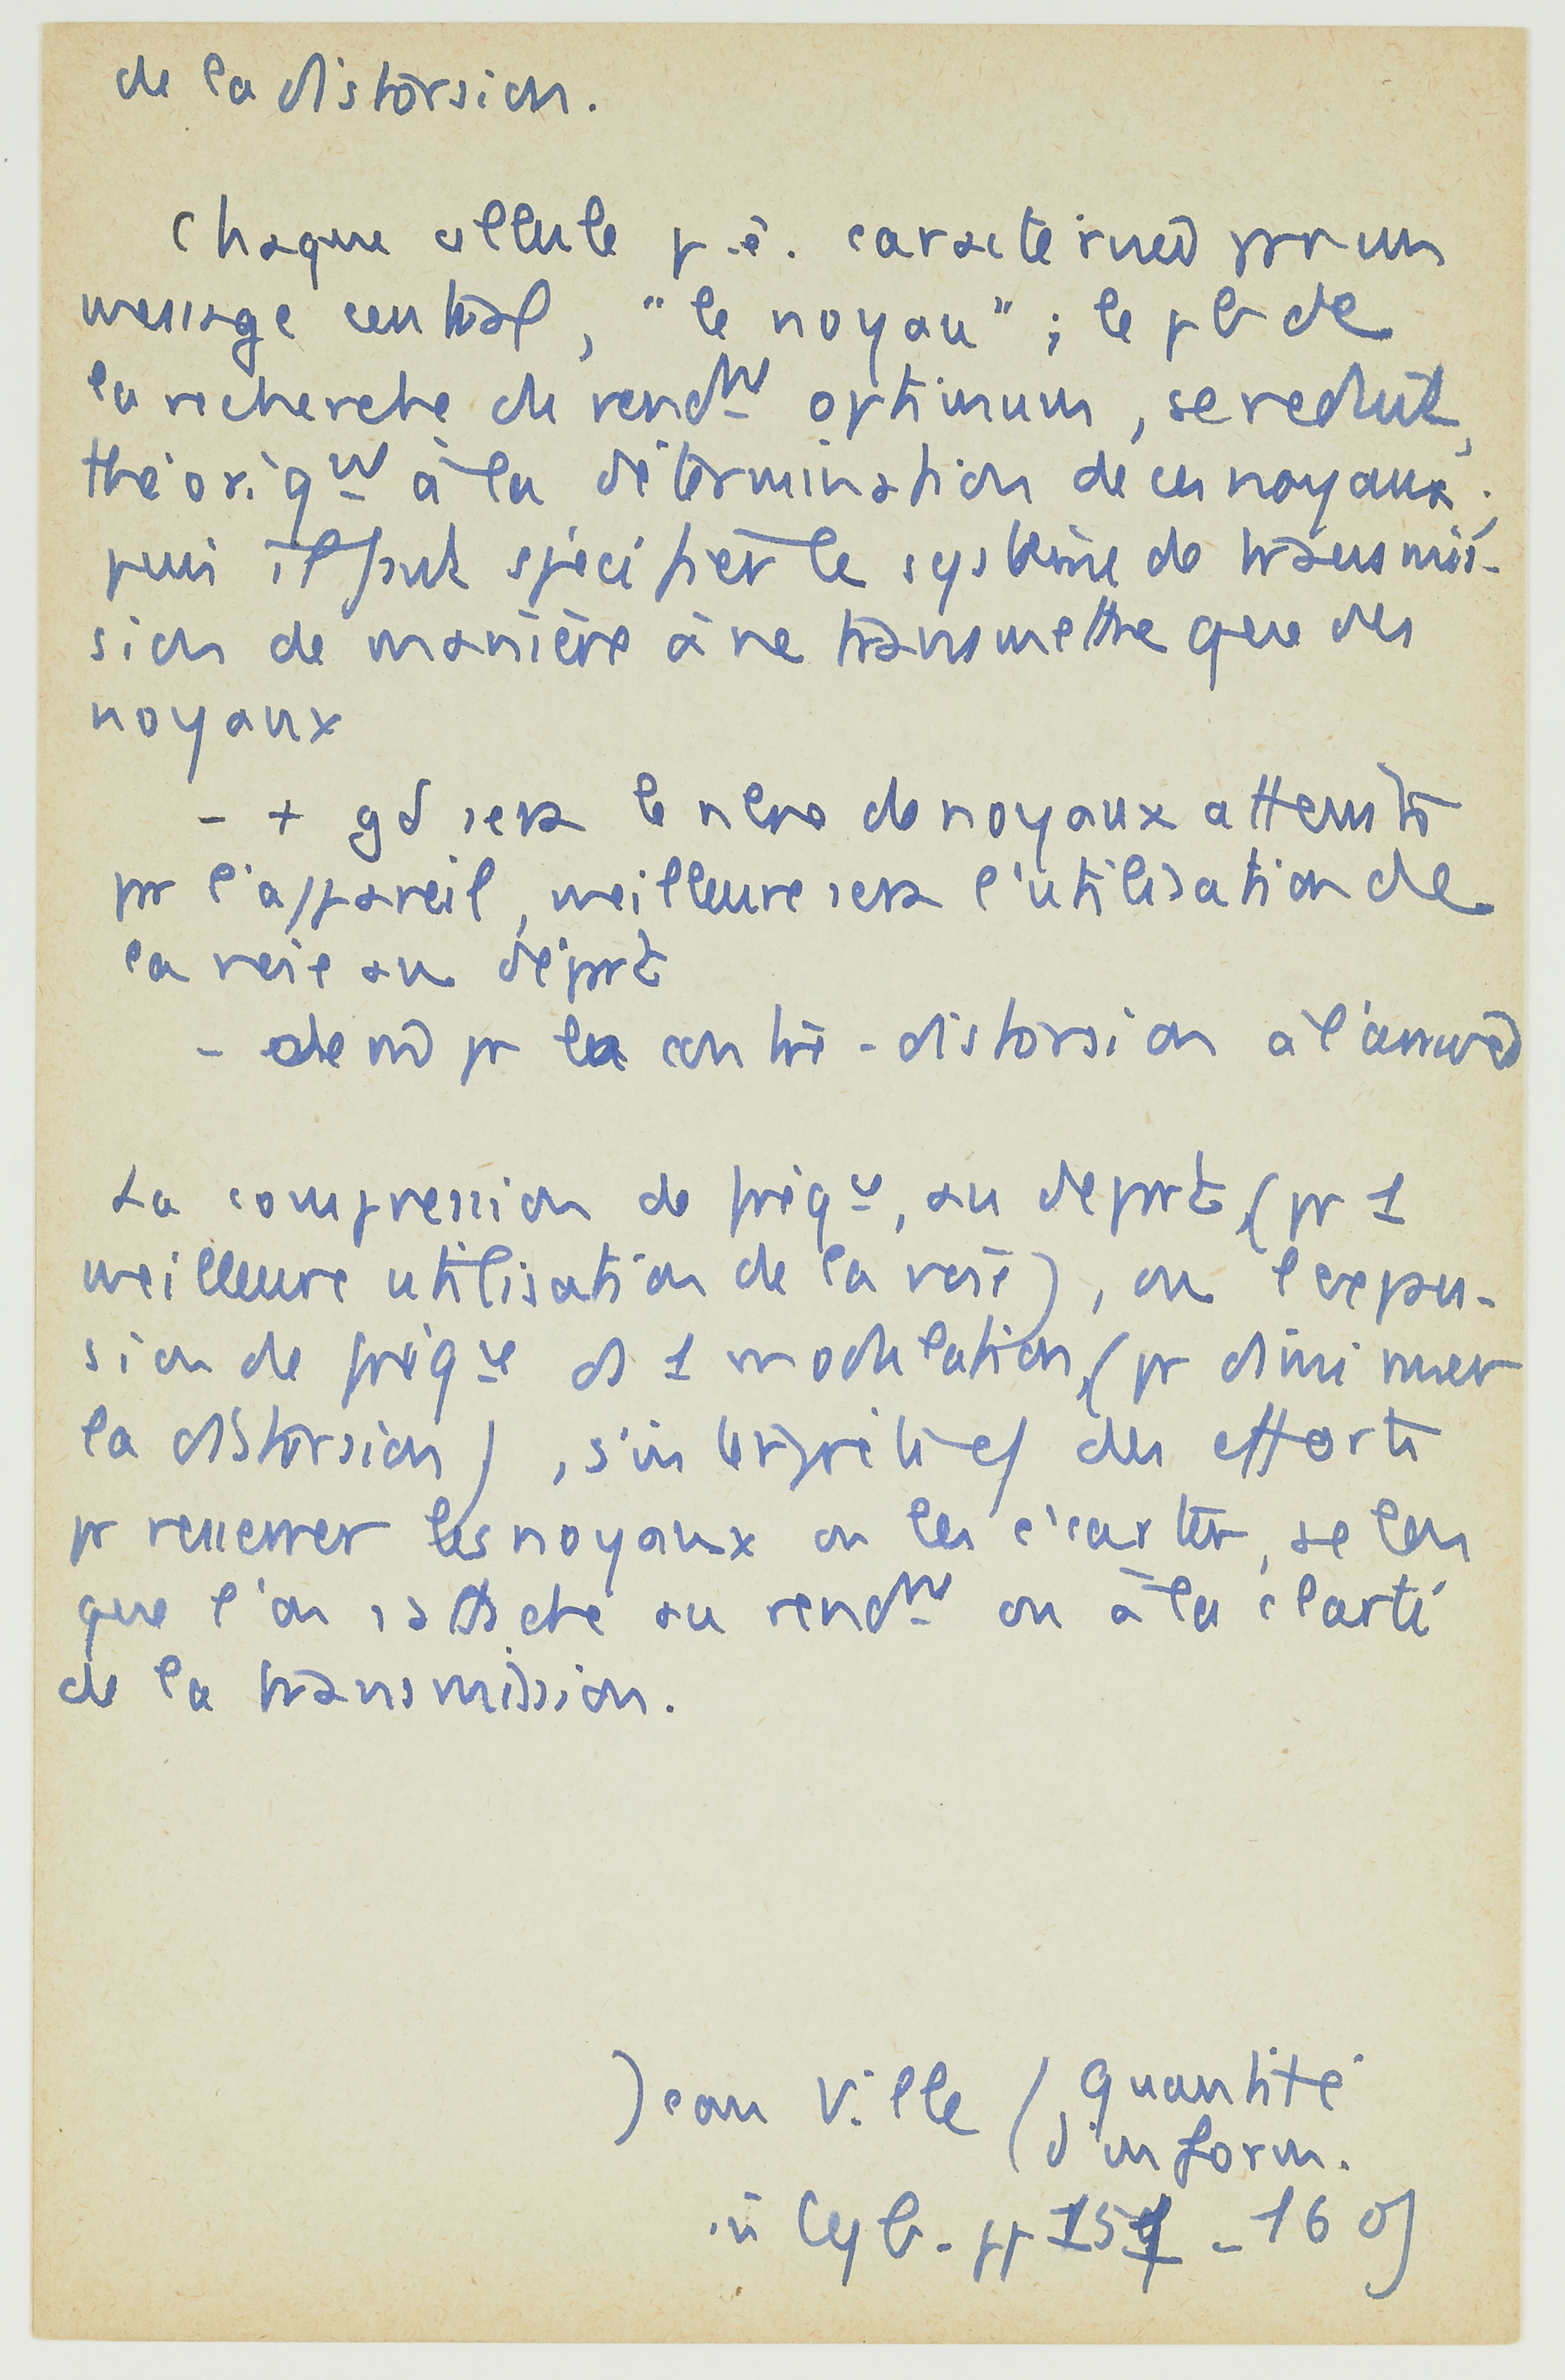 de la distorsion.
Chaque cellule p. ê. caractérisée par un
message central, "le noyau" ; le pb de
la recherche du rendt optimum, se réduit,
théoriqt à la détermination de ces noyaux ;
puis il faut spécifier le système de transmis-
sion de manière à ne transmettre que des
noyaux
- + gd sera le nbre de noyaux attenités
pr l'appareil, meilleure sera l'utilisation de
la voie au départ
- de m pr la contre-distorsion à l'arrivée
La compression de fréqce, au départ, (pr 1
meilleure utilisation de la voie), ou l'expan-
sion de fréqce ds 1 modulation, (pr diminuer
la distorsion), s'interprète cs des efforts
pr resserrer les noyaux ou les écarter, selon
que l'on s'attache au rendt ou à la clarté
de la transmission.
Jean Ville (Quantité
d'inform.
in Cyb. pp 151 - 160)